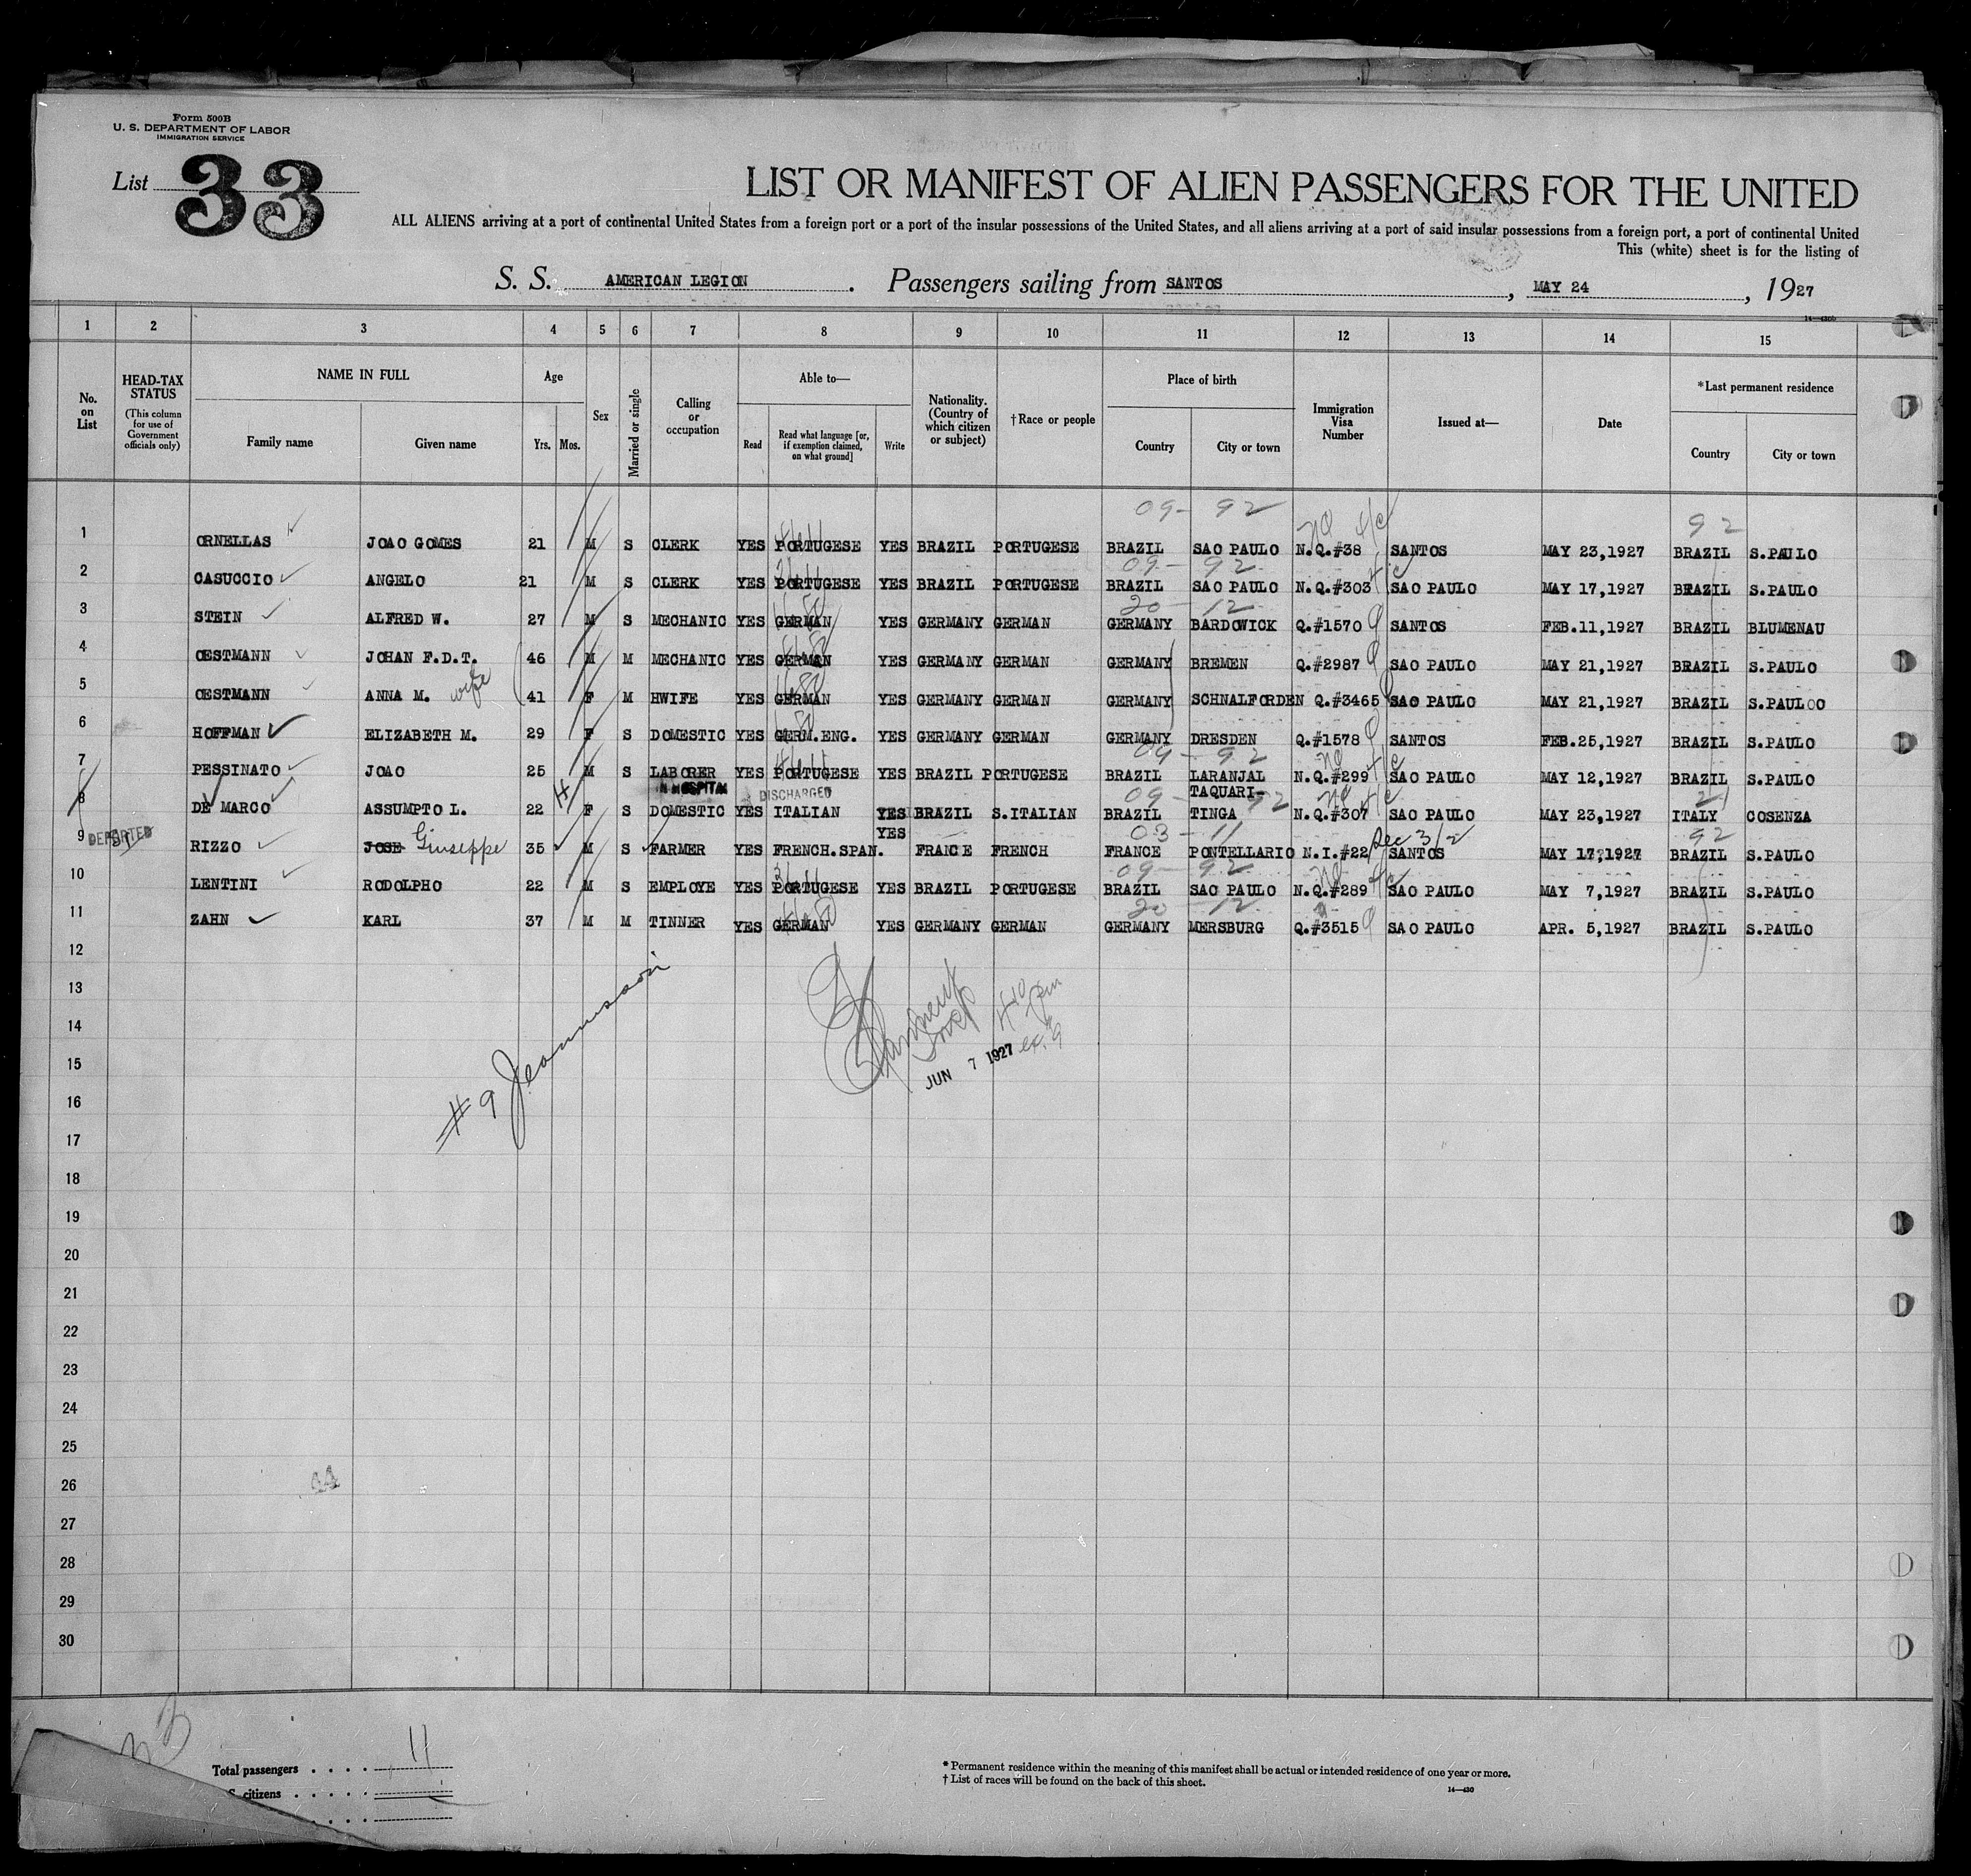 Form 500B
U. S. DEPARTMENT OF LABOR
IMMIGRATION SERVICE
List 33
LIST OR MANIFEST OF ALIEN PASSENGERS FOR THE UNITED
ALL ALIENS arriving at a port of continental United States from a foreign port or a port of the insular possessions of the United States, and all aliens arriving at a port of said insular possessions from a foreign port, a port of continental United
This (white) sheet is for the listing of
S. S. AMERICAN LEGION. Passengers sailing from SANTOS, MAY 24, 1927
14—430b
1 2 3 4 5 6 7 8 9 10 11 12 13 14 15
No. on List
HEAD-TAX STATUS
(This column for use of Government officials only)
NAME IN FULL
Family name Given name
Age
Yrs. Mos.
Sex
Married or single
Calling or occupation
Able to—
Read Read what language [or, if exemption claimed, on what ground] Write
Nationality. (Country of which citizen or subject)
†Race or people
Place of birth
Country City or town
Immigration Visa Number
Issued at—
Date
*Last permanent residence
Country City or town
09- 92 92
1 ORNELLAS JOAO GOMES 21 M S CLERK YES PORTUGESE YES BRAZIL PORTUGESE BRAZIL SAO PAULO N.Q.#38 SANTOS MAY 23,1927 BRAZIL S.PAULO
09- 92
2 CASUCCIO ANGELO 21 M S CLERK YES PORTUGESE YES BRAZIL PORTUGESE BRAZIL SAO PAULO N.Q.#303 SAO PAULO MAY 17,1927 BRAZIL S.PAULO
20 - 12
3 STEIN ALFRED W. 27 M S MECHANIC YES GERMAN YES GERMANY GERMAN GERMANY BARDOWICK Q.#1570 SANTOS FEB.11,1927 BRAZIL BLUMENAU
4 OESTMANN JOHAN F.D.T. 46 M M MECHANIC YES GERMAN YES GERMANY GERMAN GERMANY BREMEN Q.#2987 SAO PAULO MAY 21,1927 BRAZIL S.PAULO
5 OESTMANN ANNA M. wife 41 F M HWIFE YES GERMAN YES GERMANY GERMAN GERMANY SCHNALFORDEN Q.#3465 SAO PAULO MAY 21,1927 BRAZIL S.PAULOO
6 HOFFMAN ELIZABETH M. 29 F S DOMESTIC YES GERM.ENG. YES GERMANY GERMAN GERMANY DRESDEN Q.#1578 SANTOS FEB.25,1927 BRAZIL S.PAULO
09 - 92
7 PESSINATO JOAO 25 M S LABORER YES PORTUGESE YES BRAZIL PORTUGESE BRAZIL LARANJAL N.Q.#299 SAO PAULO MAY 12,1927 BRAZIL S.PAULO
IN HOSPITAL DISCHARGED
09- 92
8 DE MARCO ASSUMPTO L. 22 F S DOMESTIC YES ITALIAN YES BRAZIL S.ITALIAN BRAZIL TAQUARI-TINGA N.Q.#307 SAO PAULO MAY 23,1927 ITALY COSENZA
DEPORTED
03 - 11 Sec 3/2 92
9 RIZZO JOSE Giuseppe 35 M S FARMER YES FRENCH.SPAN. YES FRANCE FRENCH FRANCE PONTELLARIO N.I.#22 SANTOS MAY 17,1927 BRAZIL S.PAULO
09- 92
10 LENTINI RODOLPHO 22 M S EMPLOYE YES PORTUGESE YES BRAZIL PORTUGESE BRAZIL SAO PAULO N.Q.#289 SAO PAULO MAY 7,1927 BRAZIL S.PAULO
20 - 12
11 ZAHN KARL 37 M M TINNER YES GERMAN YES GERMANY GERMAN GERMANY MERSBURG Q.#3515 SAO PAULO APR. 5,1927 BRAZIL S.PAULO
12
13
14
15
JUN 7 1927
16
#9
17
18
19
20
21
22
23
24
25
26
27
28
29
30
33
Total passengers 11
citizens
* Permanent residence within the meaning of this manifest shall be actual or intended residence of one year or more.
† List of races will be found on the back of this sheet.
14—430